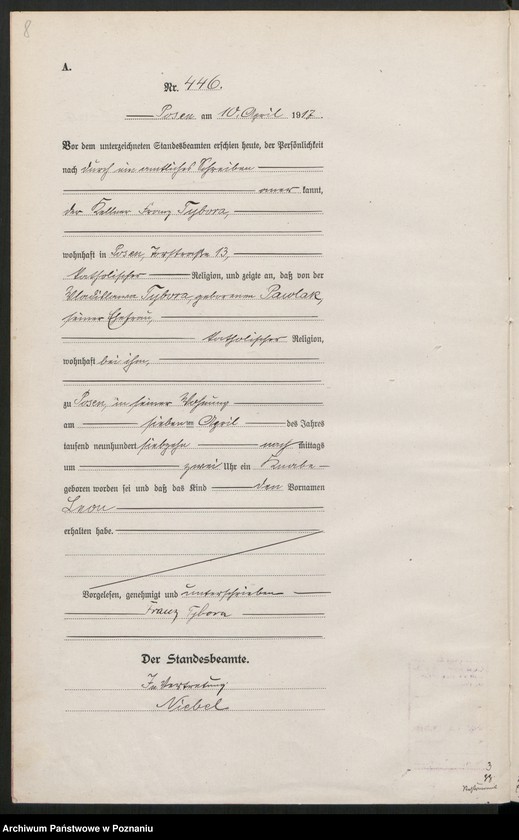 8
A.
Nr. 446.
Posen am 10. April 1917.
Vor dem unterzeichneten Standesbeamten erschien heute, der Persönlichkeit
nach durch ein amtliches Schreiben
aner kannt,
der Kellner Franz Tybora,
wohnhaft in Posen, Torstraße 13,
katholischer Religion, und zeigte an, daß von der
Wladislawa Tybora, geborenen Pawlak,
seiner Ehefrau,
katholischer Religion,
wohnhaft bei ihm,
zu Posen, in seiner Wohnung
am sieben ten April des Jahres
tausend neunhundert siebzehn nach mittags
um zwei Uhr ein Knabe
geboren worden sei und daß das Kind den Vornamen
Leon
erhalten habe.
Vorgelesen, genehmigt und unterschrieben
Franz Tybora
Der Standesbeamte.
In Vertretung
Niebel
3
Archiwum Państwowe w Poznaniu